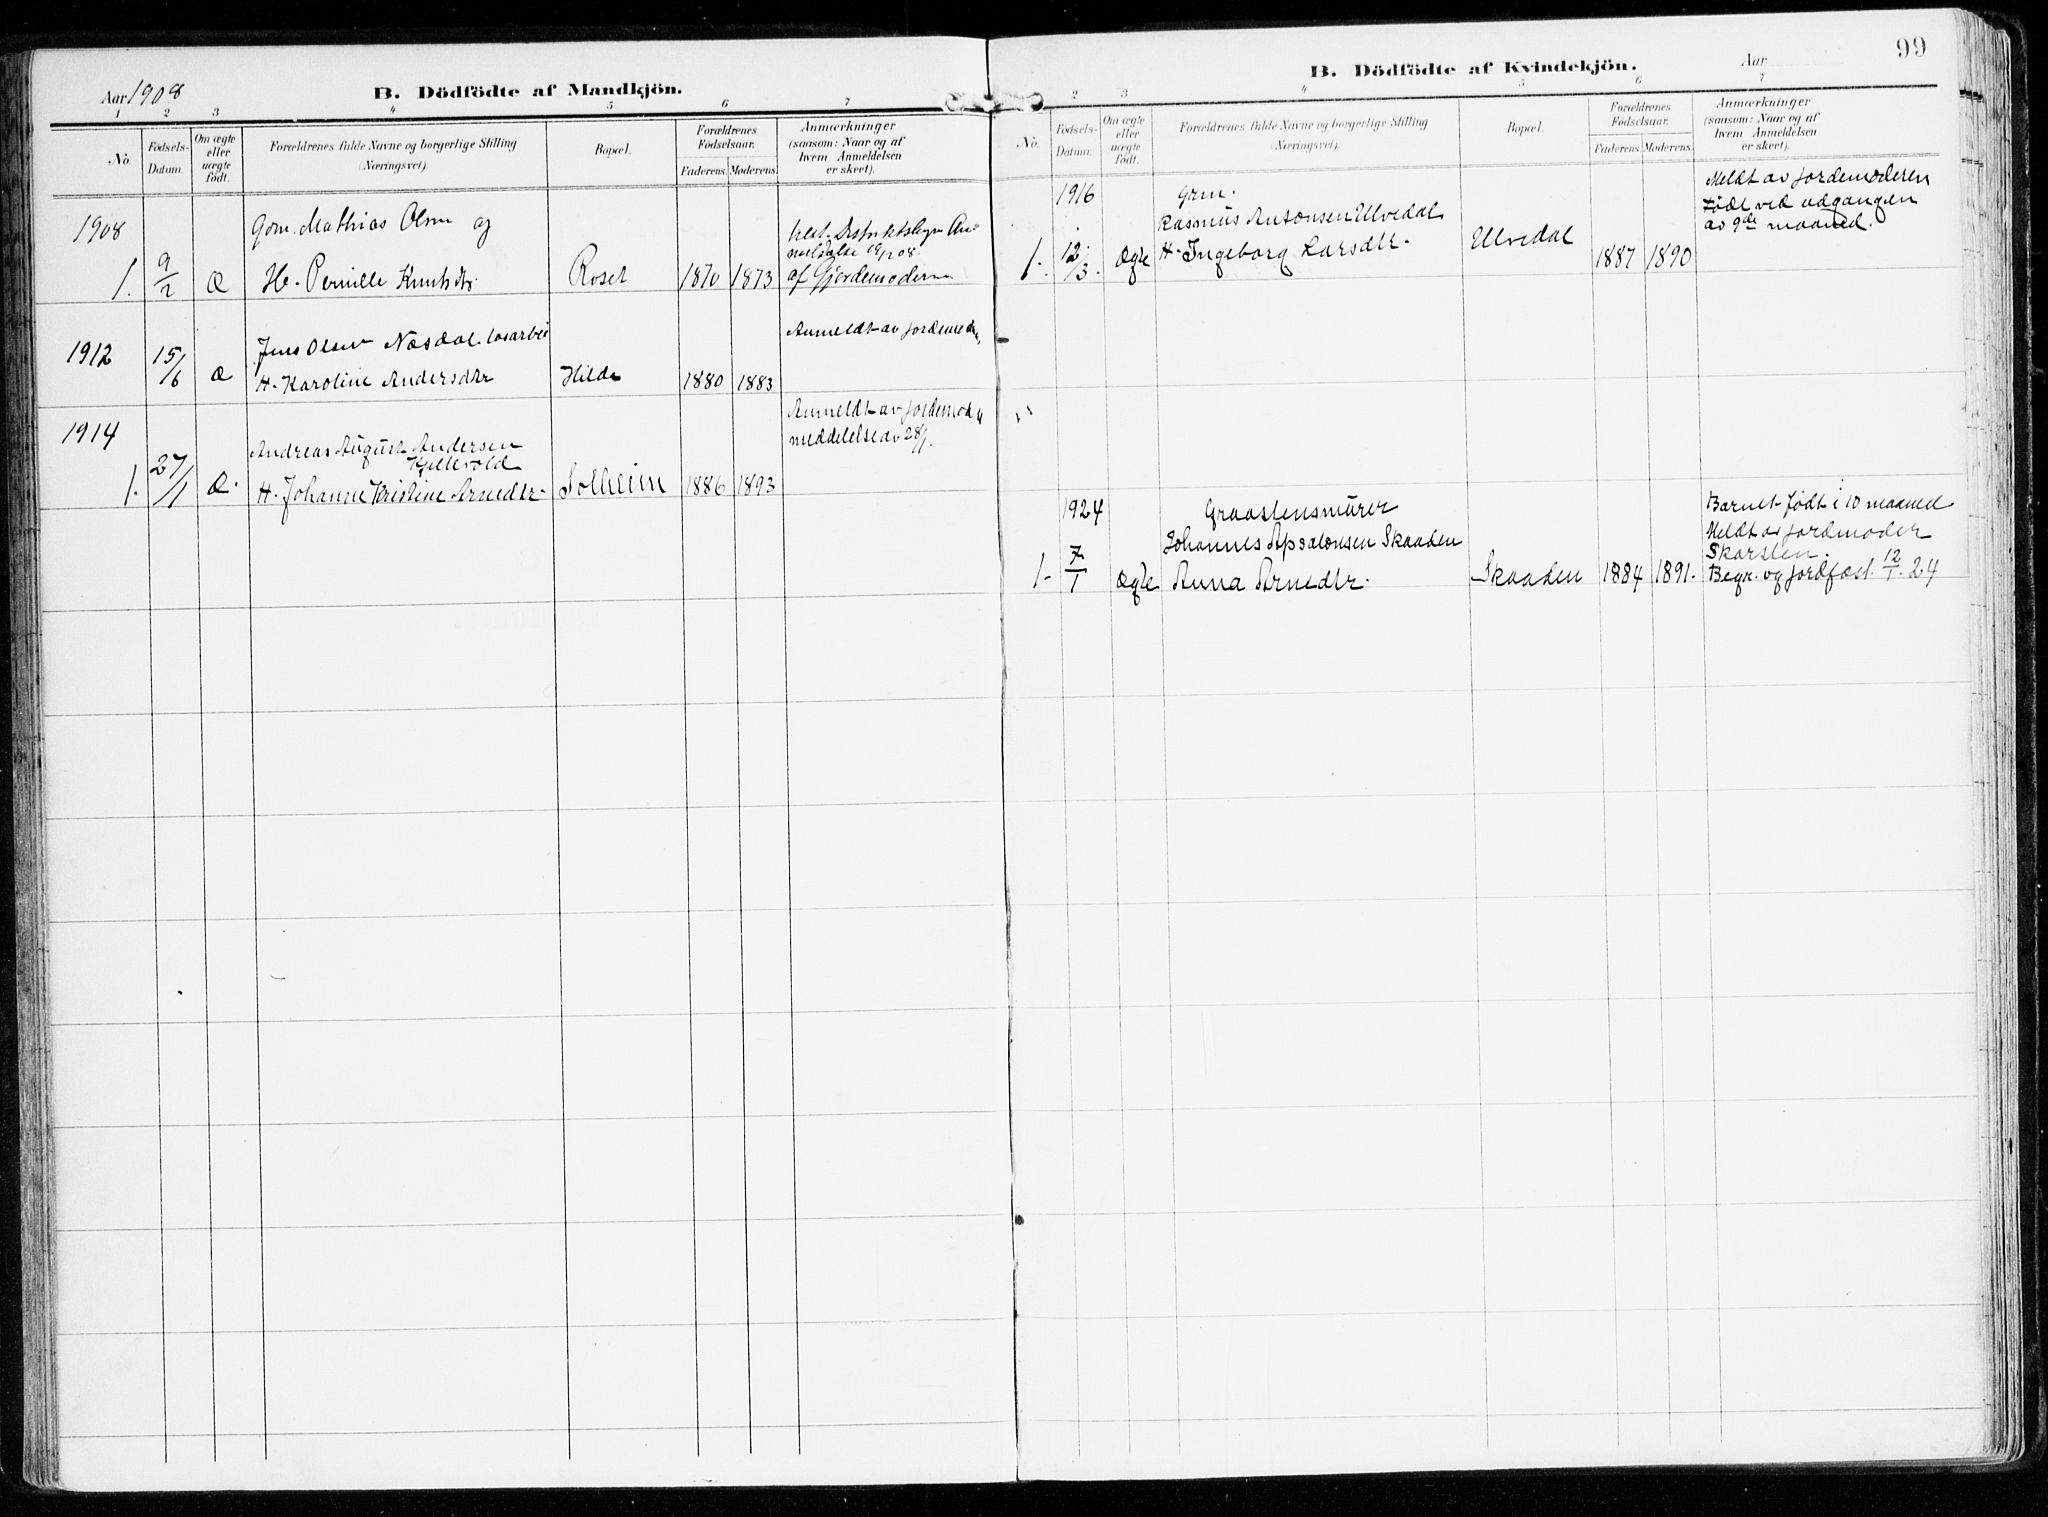 Aar 1908
B. Dödfödte af Mandkjön.
1 2 3 4 5 6 7
No.
Födsels-Datum.
Om ægte eller uægte födt.
Forældrenes fulde Navne og borgerlige Stilling
(Næringsvei).
Bopæl.
Forældrenes Födselsaar.
Faderens. Moderens.
Anmærkninger
(saasom: Naar og af
hvem Anmeldelsen
er skeet).
1908
Gbm. Mathias Olsen og
1. 9/2 Æ H. Pernille Knutsdtr. Roset 1870 1873
meldelse 19/2 08
af Gjordemoderen
1912 15/6 Æ
Jens Olsen Næsdal losarbei
H. Karoline Andersdtr Hilde 1880 1883
Anmeldt av jordemodr
1914
1. 27/1 Æ.
Andreas August Andersen
Kjellevold
H. Johanne Kristine Arnedtr. Solheim 1886 1893
Anmeldt av jordemod
meddelelse av 28/1.
99
B. Dödfödte af Kvindekjön.
Aar
2 3 4 5 6 7
No.
Födsels-Datum.
Om ægte eller uægte födt.
Forældrenes fulde Navne og borgerlige Stilling
(Næringsvei).
Bopæl.
Forældrenes Födselsaar.
Faderens. Moderens.
Anmærkninger
(saasom: Naar og af
hvem Anmeldelsen
er skeet).
1916
1. 12/3. Ægte
Gbm.
Rasmus Antonsen Ulvedal
H. Ingeborg Larsdtr. Ulvedal 1887 1890
Meldt av jordemoderen
Født ved udgangen
av 9de maaned.
1924
1. 7/1 Ægte
Graastensmurer
Johannes Apsalonsen Skaaden
Anna Arnedtr. Skaaden 1884 1891.
Barnet født i 10 maaned
Meldt av jordmoder
Skarsten.
Begr. og jordfæst. 12/1. 24